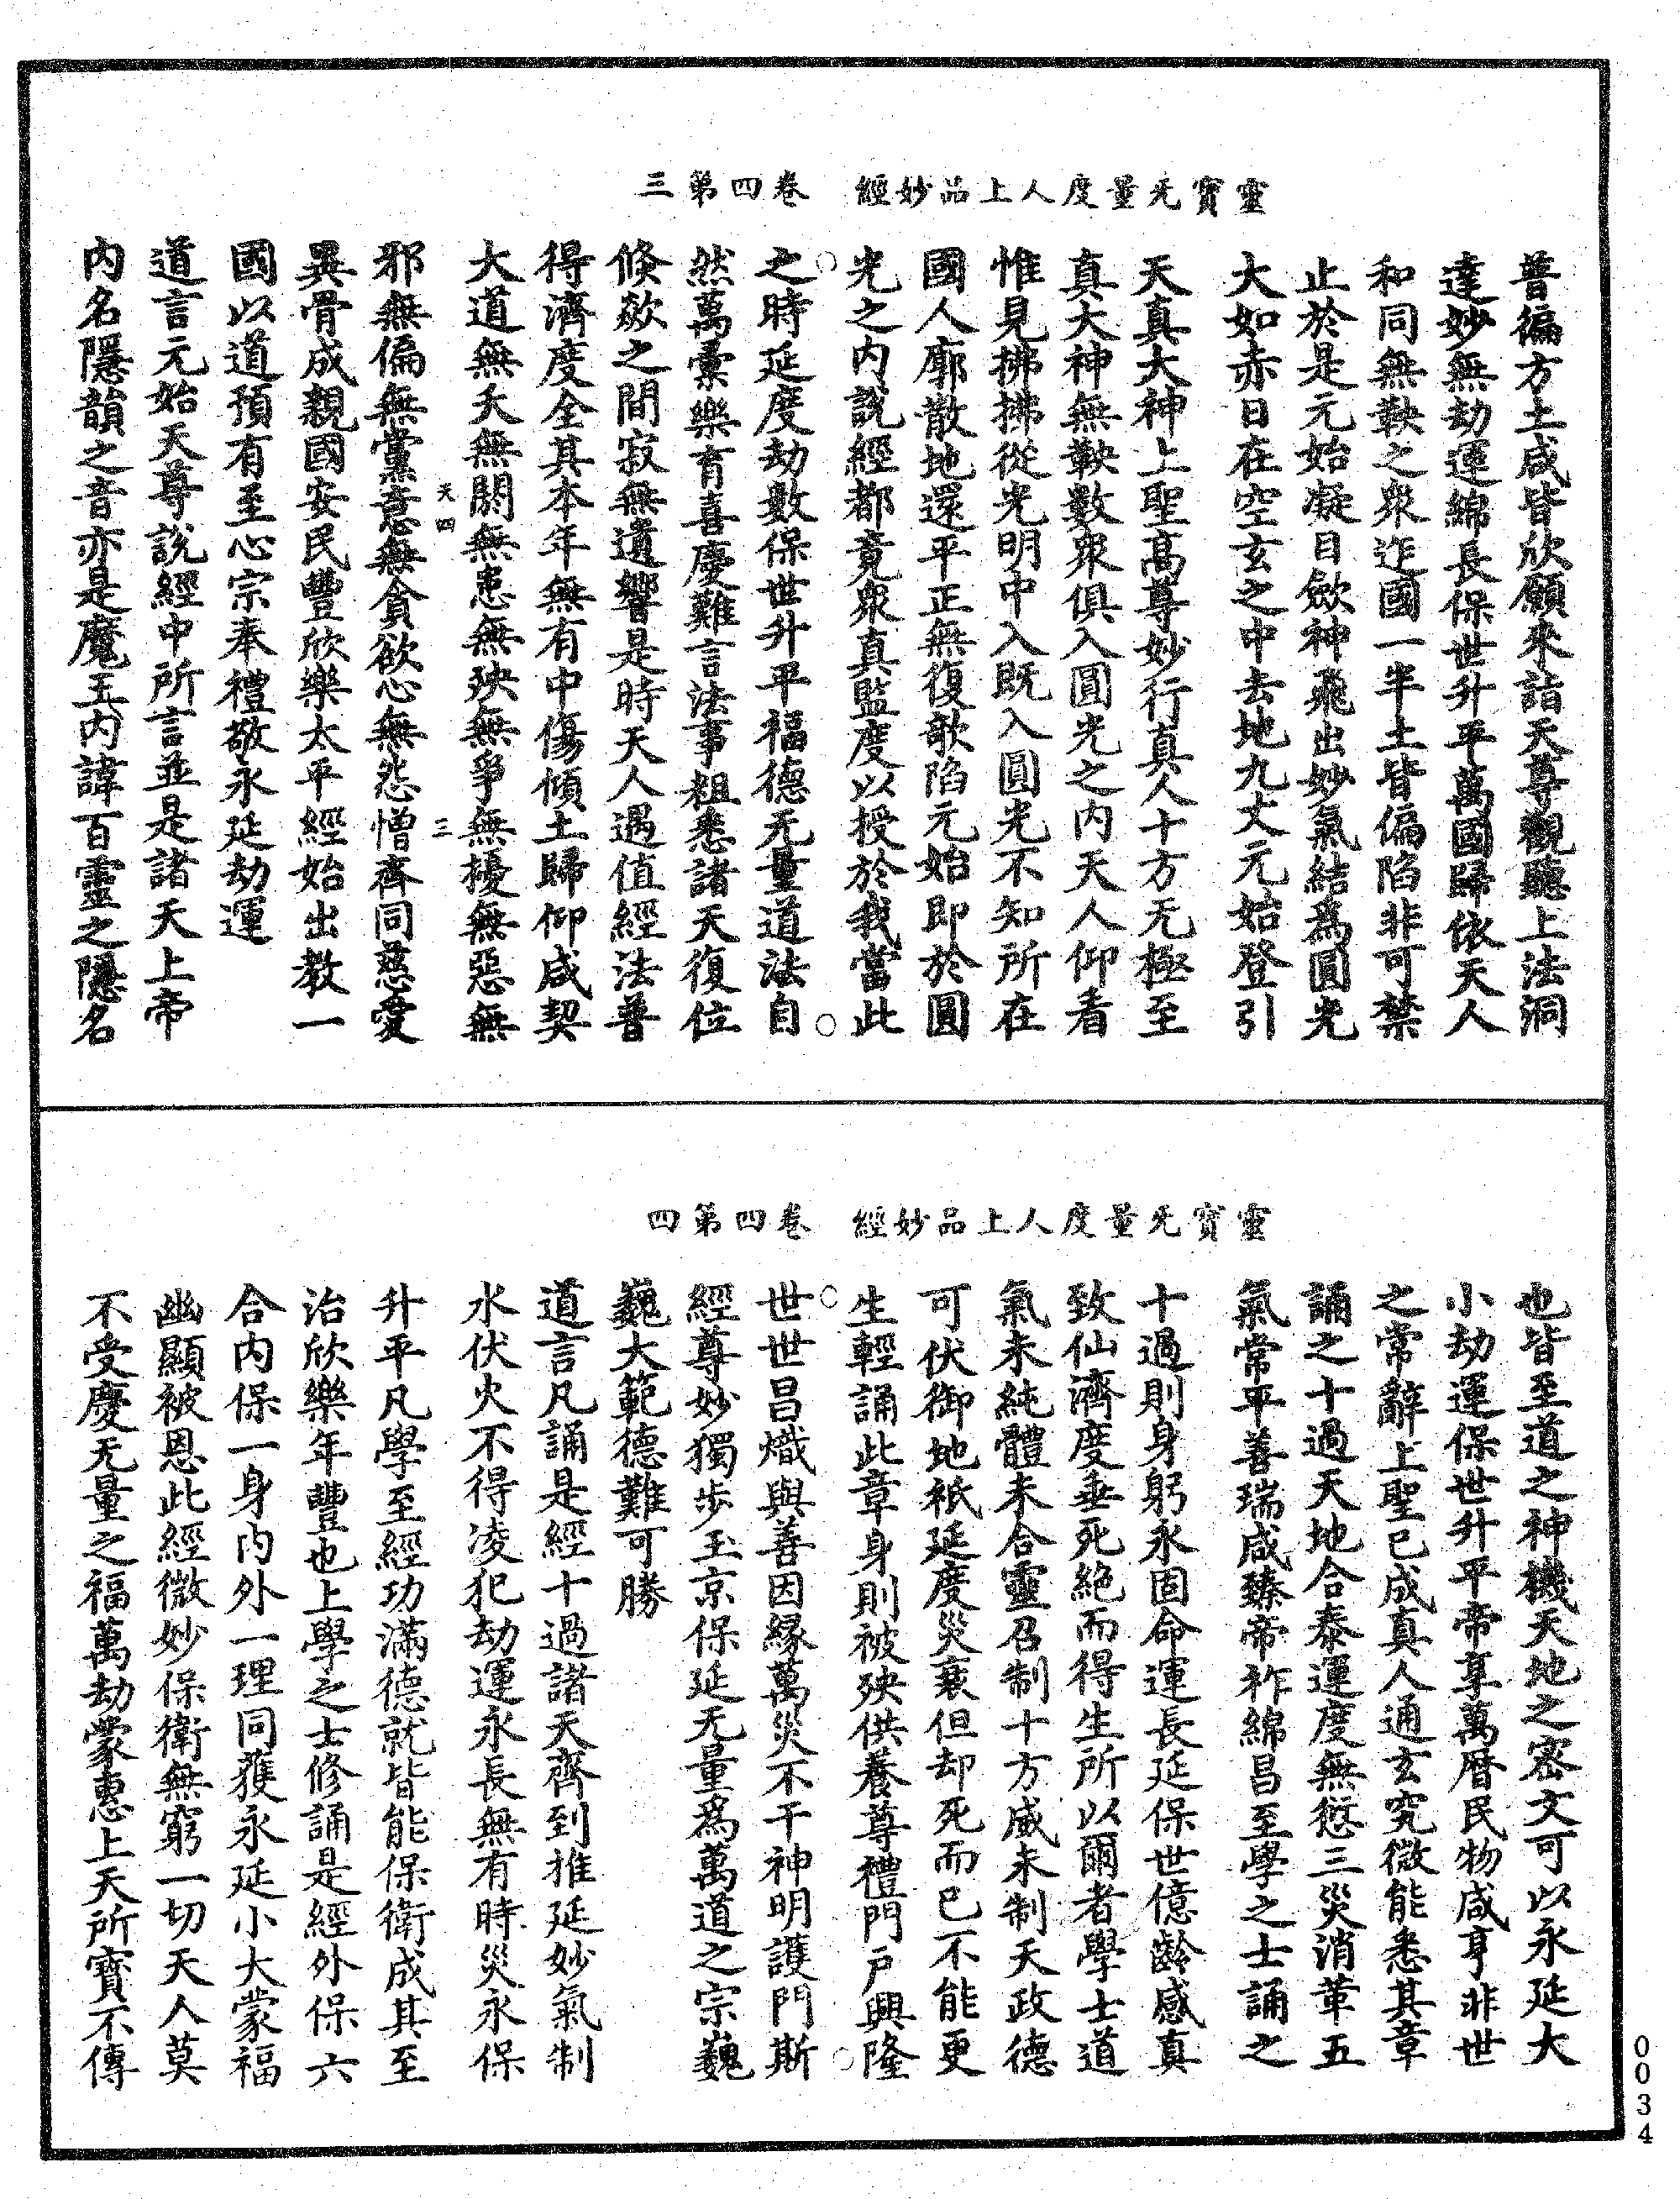 靈寶无量度人上品妙經　卷四第三
普徧方土咸皆欣願來詣天尊觀聽上法洞
達妙無劫運綿長保世升平萬國歸依天人
和同無鞅之衆迮國一半土皆偏陷非可禁
止於是元始凝目斂神飛出妙氣結爲圓光
大如赤日在空玄之中去地九丈元始登引
天真大神上聖高尊妙行真人十方无極至
真大神無鞅數衆俱入圓光之内天人仰看
惟見拂拂從光明中入既入圓光不知所在
國人廓散地還平正無復欹陷元始即於圓
光之内說經都竟衆真監度以授於我當此
之時延度劫數保世升平福德无量道法自
然萬彙樂育喜慶難言法事粗悉諸天復位
倏歘之間寂無遺響是時天人遇值經法普
得濟度全其本年無有中傷傾土歸仰咸契
大道無夭無閼無患無殃無爭無擾無惡無
天四　三
邪無偏無黨意無貪欲心無怨憎齊同慈愛
異骨成親國安民豐欣樂太平經始出教一
國以道預有至心宗奉禮敬永延劫運
道言元始天尊說經中所言並是諸天上帝
内名隱韻之音亦是魔王内諱百靈之隱名
靈寶无量度人上品妙經　卷四第四
也皆至道之神機天地之密文可以永延大
小劫運保世升平帝享萬曆民物咸亨非世
之常辭上聖已成真人通玄究微能悉其章
誦之十過天地合泰運度無愆三災消葷五
氣常平善瑞咸臻帝祚綿昌至學之士誦之
十過則身躬永固命運長延保世億齡感真
致仙濟度垂死絕而得生所以爾者學士道
氣未純體未合靈召制十方威未制天政德
可伏御地祇延度災衰但却死而已不能更
生輕誦此章身則被殃供養尊禮門户興隆
世世昌熾與善因緣萬災不干神明護門斯
經尊妙獨步玉京保延无量爲萬道之宗巍
巍大範德難可勝
道言凡誦是經十過諸天齊到推延妙氣制
水伏火不得凌犯劫運永長無有時災永保
升平凡學至經功滿德就皆能保衛成其至
治欣樂年豐也上學之士修誦是經外保六
合内保一身内外一理同獲永延小大蒙福
幽顯被恩此經微妙保衛無窮一切天人莫
不受慶无量之福萬劫蒙惠上天所寶不傳
0034